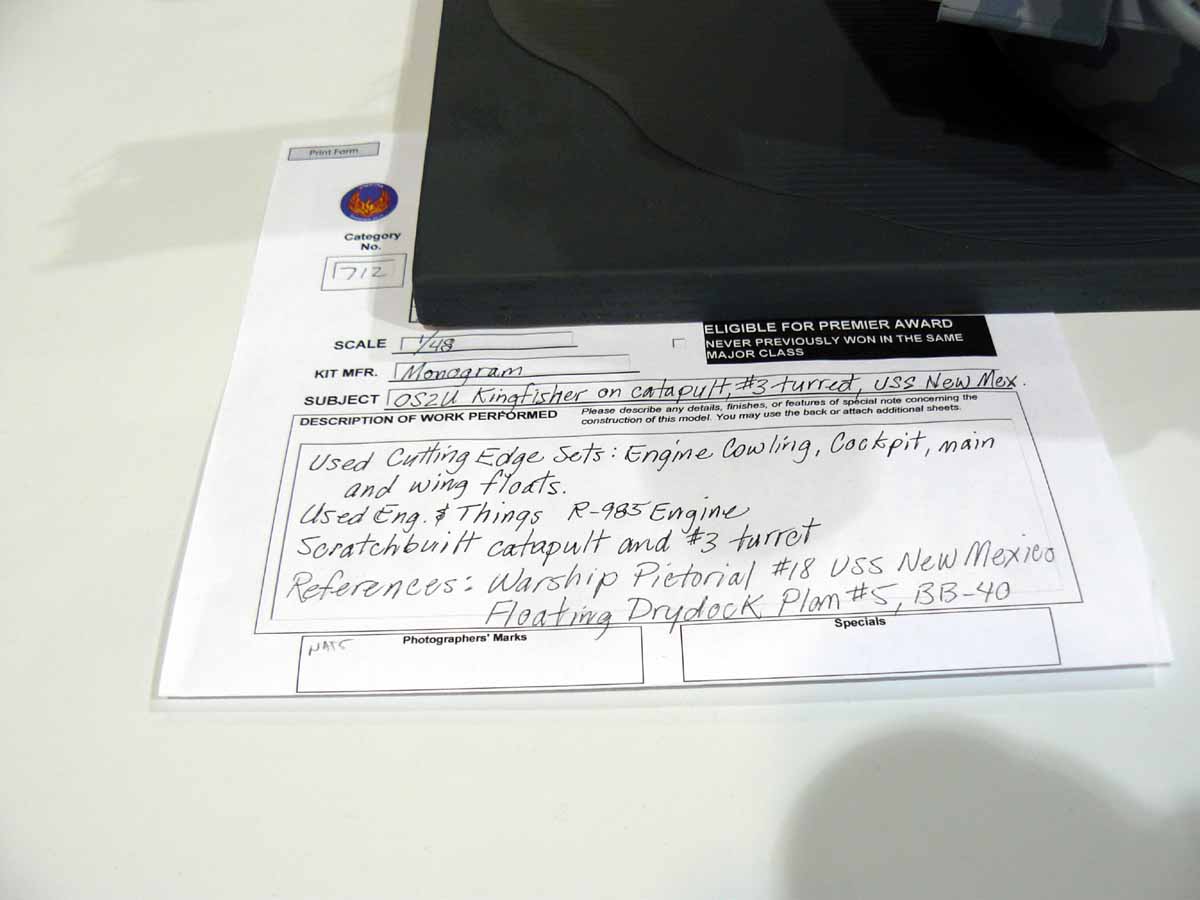 Print Form
Category
No.
712
SCALE 1/48
ELIGIBLE FOR PREMIER AWARD
NEVER PREVIOUSLY WON IN THE SAME
MAJOR CLASS
KIT MFR. Monogram
SUBJECT OS2U Kingfisher on catapult, #3 turret, USS New Mex.
DESCRIPTION OF WORK PERFORMED
Please describe any details, finishes, or features of special note concerning the
construction of this model. You may use the back or attach additional sheets.
Used Cutting Edge Sets: Engine Cowling, Cockpit, main
and wing floats.
Used Eng. & Things R-985 Engine
Scratchbuilt catapult and #3 turret
References: Warship Pictorial #18 USS New Mexico
Floating Drydock Plan #5, BB-40
Photographers' Marks
Specials
NATS